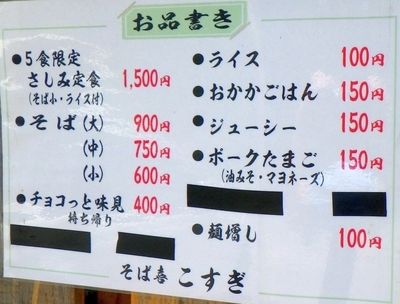 お品書き
●5食限定
さしみ定食 1,500円
(そば小・ライス付)
●そば(大) 900円
(中) 750円
(小) 600円
●チョコっと味見 400円
持ち帰り
●ライス 100円
●おかかごはん 150円
●ジューシー 150円
●ポークたまご 150円
(油みそ・マヨネーズ)
●麺増し 100円
そば喜 こすぎ